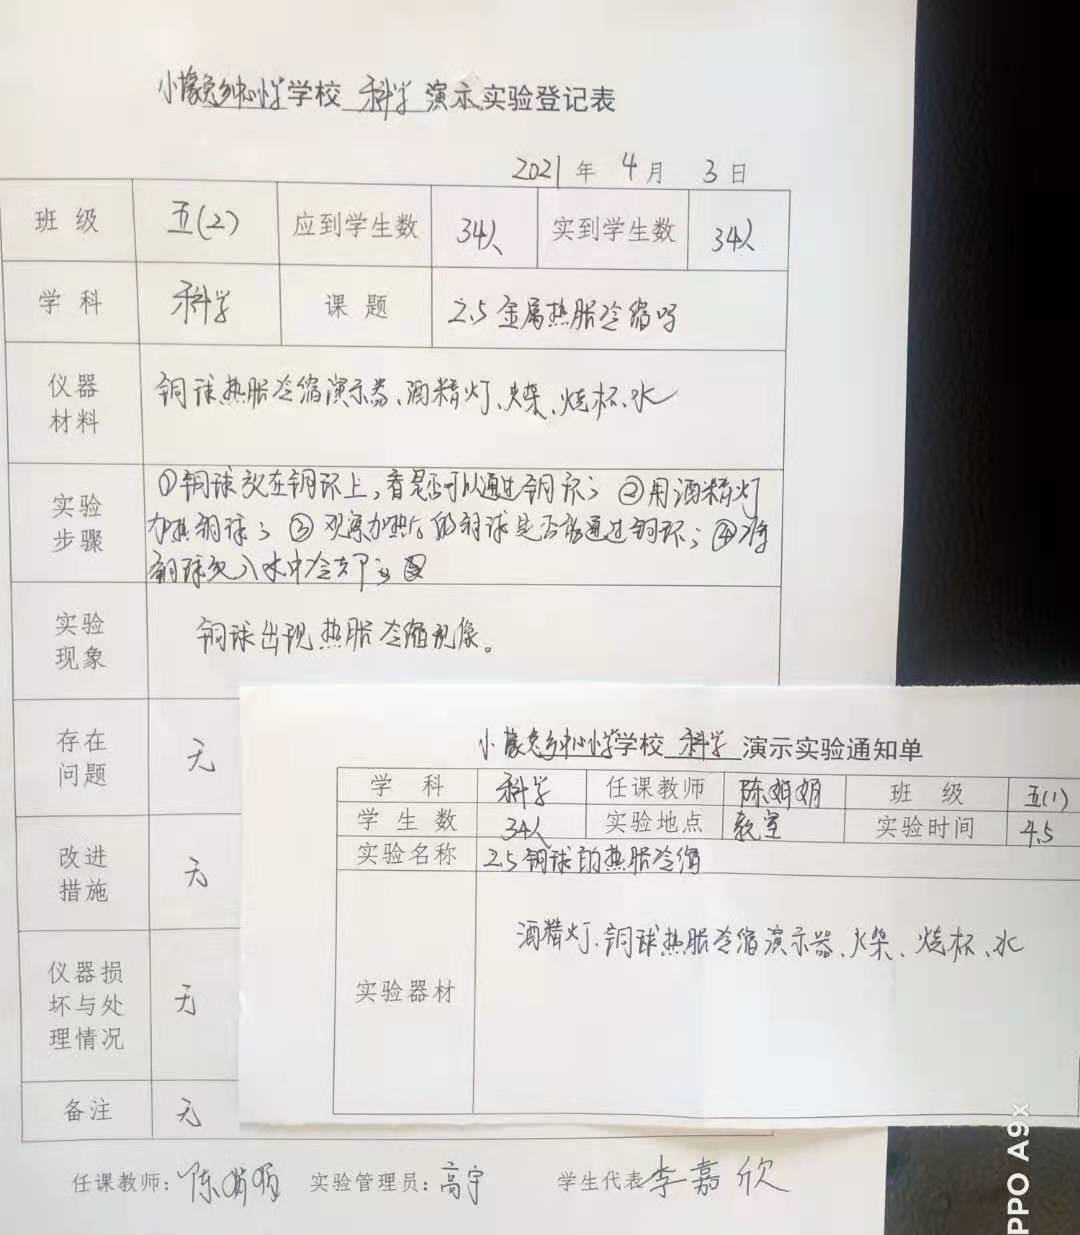 小橡兔乡中心小学学校 科学 演示实验登记表
2021 年 4 月 3 日
班 级 五(2) 应到学生数 34人 实到学生数 34人
学 科 科学 课 题 2.5金属热胀冷缩吗
仪器
材料
铜球热胀冷缩演示器、酒精灯、火柴、烧杯、水
实验
步骤
①铜球放在铜环上,看是否可以通过铜环; ②用酒精灯
加热铜球; ③观察加热后的铜球是否能通过铜环; ④将
铜球放入水中冷却
实验
现象
铜球出现热胀冷缩现像。
存在
问题
无
改进
措施
无
仪器损
坏与处
理情况
无
备注 无
任课教师: 陈娟娟 实验管理员: 高宇 学生代表 李嘉欣
小橡兔乡中心小学学校 科学 演示实验通知单
学 科 科学 任课教师 陈娟娟 班 级 五(1)
学 生 数 34人 实验地点 教室 实验时间 4.5
实验名称 2.5铜球的热胀冷缩
实验器材
酒精灯、铜球热胀冷缩演示器、火柴、烧杯、水
PPO A9x